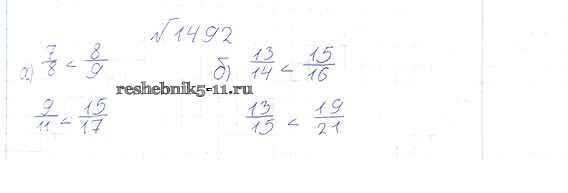 №1492
а) 7/8 < 8/9 б) 13/14 < 15/16
reshebnik5-11.ru
9/11 < 15/17 13/15 < 19/21